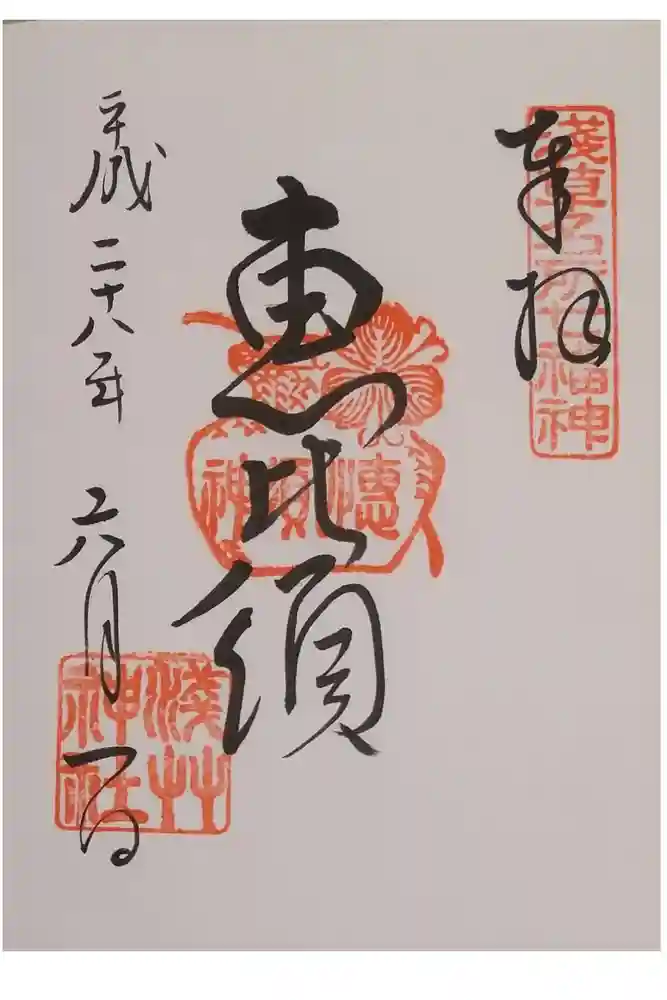 奉拝
淺草名所七福神
恵比須
惠須神
平成二十八年 六月一日
淺草神社